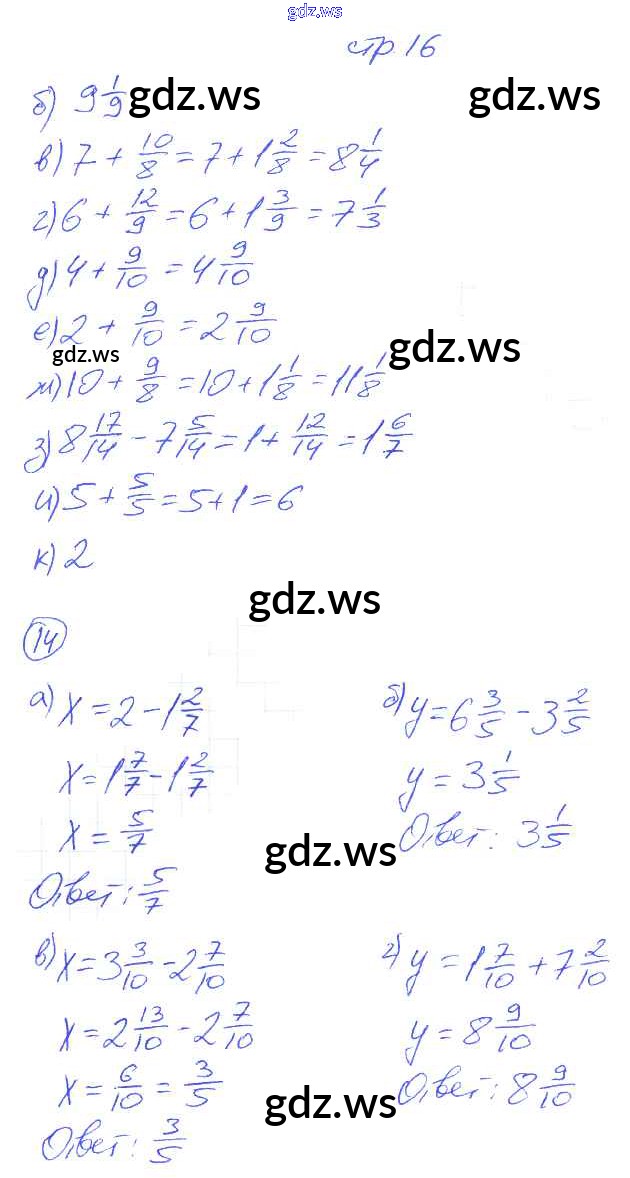 gdz.ws
стр 16
б) 9 1/9 gdz.ws gdz.ws
в) 7 + 10/8 = 7 + 1 2/8 = 8 1/4
г) 6 + 12/9 = 6 + 1 3/9 = 7 1/3
д) 4 + 9/10 = 4 9/10
е) 2 + 9/10 = 2 9/10
gdz.ws gdz.ws
ж) 10 + 9/8 = 10 + 1 1/8 = 11 1/8
з) 8 17/14 - 7 5/14 = 1 + 12/14 = 1 6/7
и) 5 + 5/5 = 5 + 1 = 6
к) 2
gdz.ws
14
а) x = 2 - 1 2/7
x = 1 7/7 - 1 2/7
x = 5/7
Ответ: 5/7
б) y = 6 3/5 - 3 2/5
y = 3 1/5
Ответ: 3 1/5
gdz.ws
в) x = 3 3/10 - 2 7/10
x = 2 13/10 - 2 7/10
x = 6/10 = 3/5
Ответ: 3/5
г) y = 1 7/10 + 7 2/10
y = 8 9/10
Ответ: 8 9/10
gdz.ws